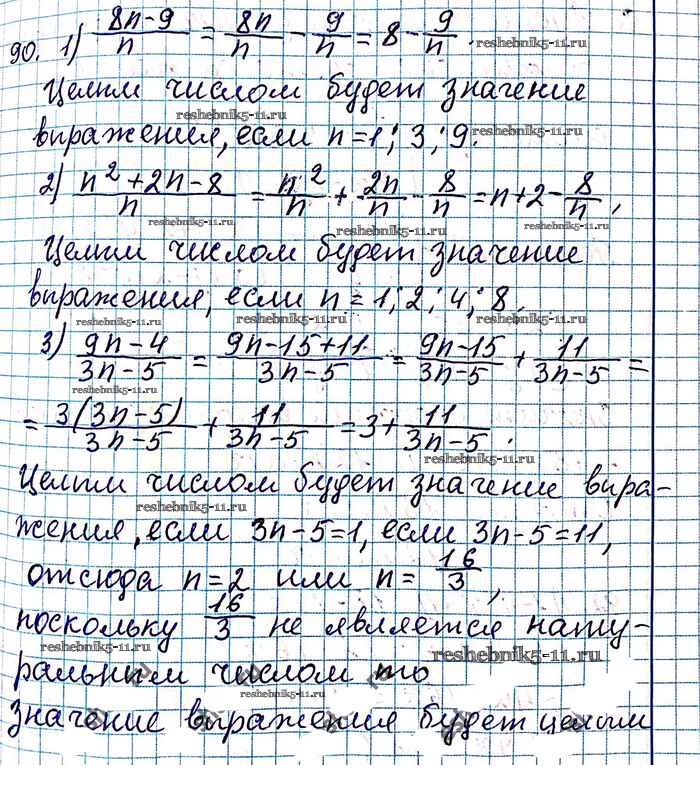 90. 1) (8n-9)/n = 8n/n - 9/n = 8 - 9/n.
reshebnik5-11.ru
Целым числом будет значение
reshebnik5-11.ru
выражения, если n=1; 3; 9.
reshebnik5-11.ru
2) (n²+2n-8)/n = n²/n + 2n/n - 8/n = n+2- 8/n,
reshebnik5-11.ru
reshebnik5-11.ru
Целым числом будет значение
выражения, если n = 1; 2; 4; 8.
reshebnik5-11.ru
reshebnik5-11.ru
3) (9n-4)/(3n-5) = (9n-15+11)/(3n-5) = (9n-15)/(3n-5) + 11/(3n-5) =
reshebnik5-11.ru
= 3(3n-5)/(3n-5) + 11/(3n-5) = 3+ 11/(3n-5).
reshebnik5-11.ru
Целым числом будет значение выра-
reshebnik5-11.ru
жения, если 3n-5=1, если 3n-5=11,
отсюда n=2 или n= 16/3,
поскольку 16/3 не является нату-
reshebnik5-11.ru
reshebnik5-11.ru
ральным числом то
reshebnik5-11.ru
значение выражения будет целым